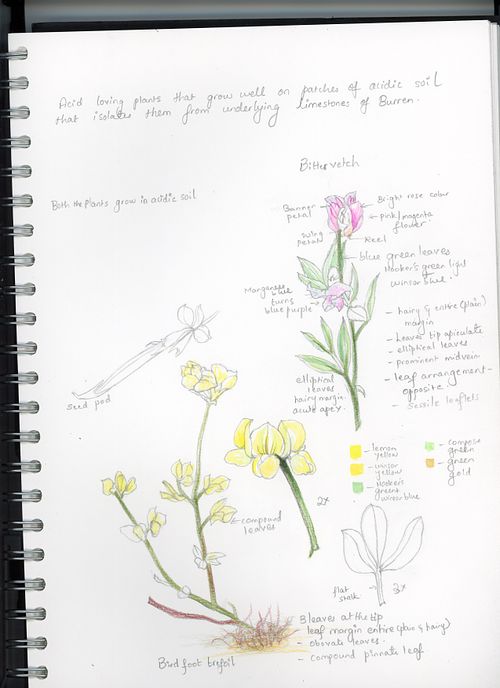 Acid loving plants that grow well on patches of acidic soil
that isolates them from underlying limestones of Burren.
Bittervetch
Both the plants grow in acidic soil
Banner
petal
Bright rose colour
pink/magenta
flower
wing
petal
Keel
blue green leaves
Hooker's green light
winsor blue
Manganese
blue
turns
blue purple
- hairy & entire (plain)
margin
- Leaves tip apiculate
- elliptical leaves
- prominent midvein
- leaf arrangement -
opposite
- sessile leaflets
elliptical
leaves
hairy margin.
acute apex.
seed pod
lemon
yellow
winsor
yellow
Hooker's
green
winsor blue
compose
green
green
gold
2x
compound
leaves
flat
stalk
2x
3 leaves at the tip
- leaf margin entire (plain & hairy)
- obovate leaves.
- compound pinnate leaf
Bird foot trefoil